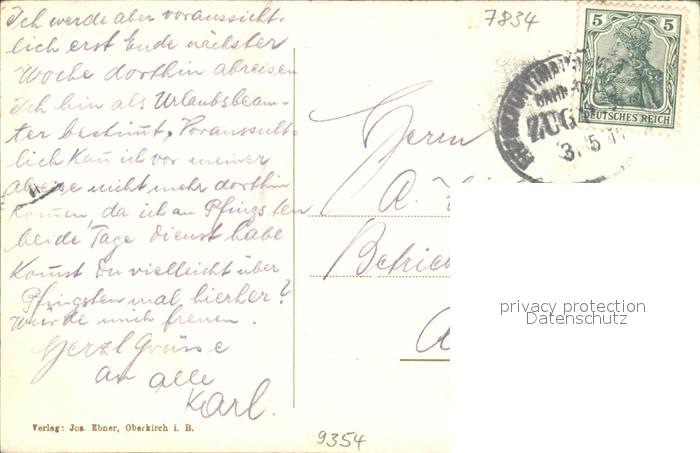 Ich werde aber voraussicht-
lich erst Ende nächster
Woche dorthin abreisen
Ich bin als Urlaubsbeam-
ter bestim̄t, Voraussicht-
lich kan̄ ich vor meiner
Abreise nicht mehr dorthin
kom̄en, da ich an Pfingsten
beide Tage Dienst habe
Kom̄st Du vielleicht über
Pfingsten mal hierher?
Würde mich freuen.
Herzl Grüsse
an alle
Karl.
Verlag: Jos. Ebner, Oberkirch i. B.
7834
5 5
DEUTSCHES REICH
BAHN
ZUG
3. 5
Herrn
A.
Betrie
A
privacy protection
Datenschutz
9354